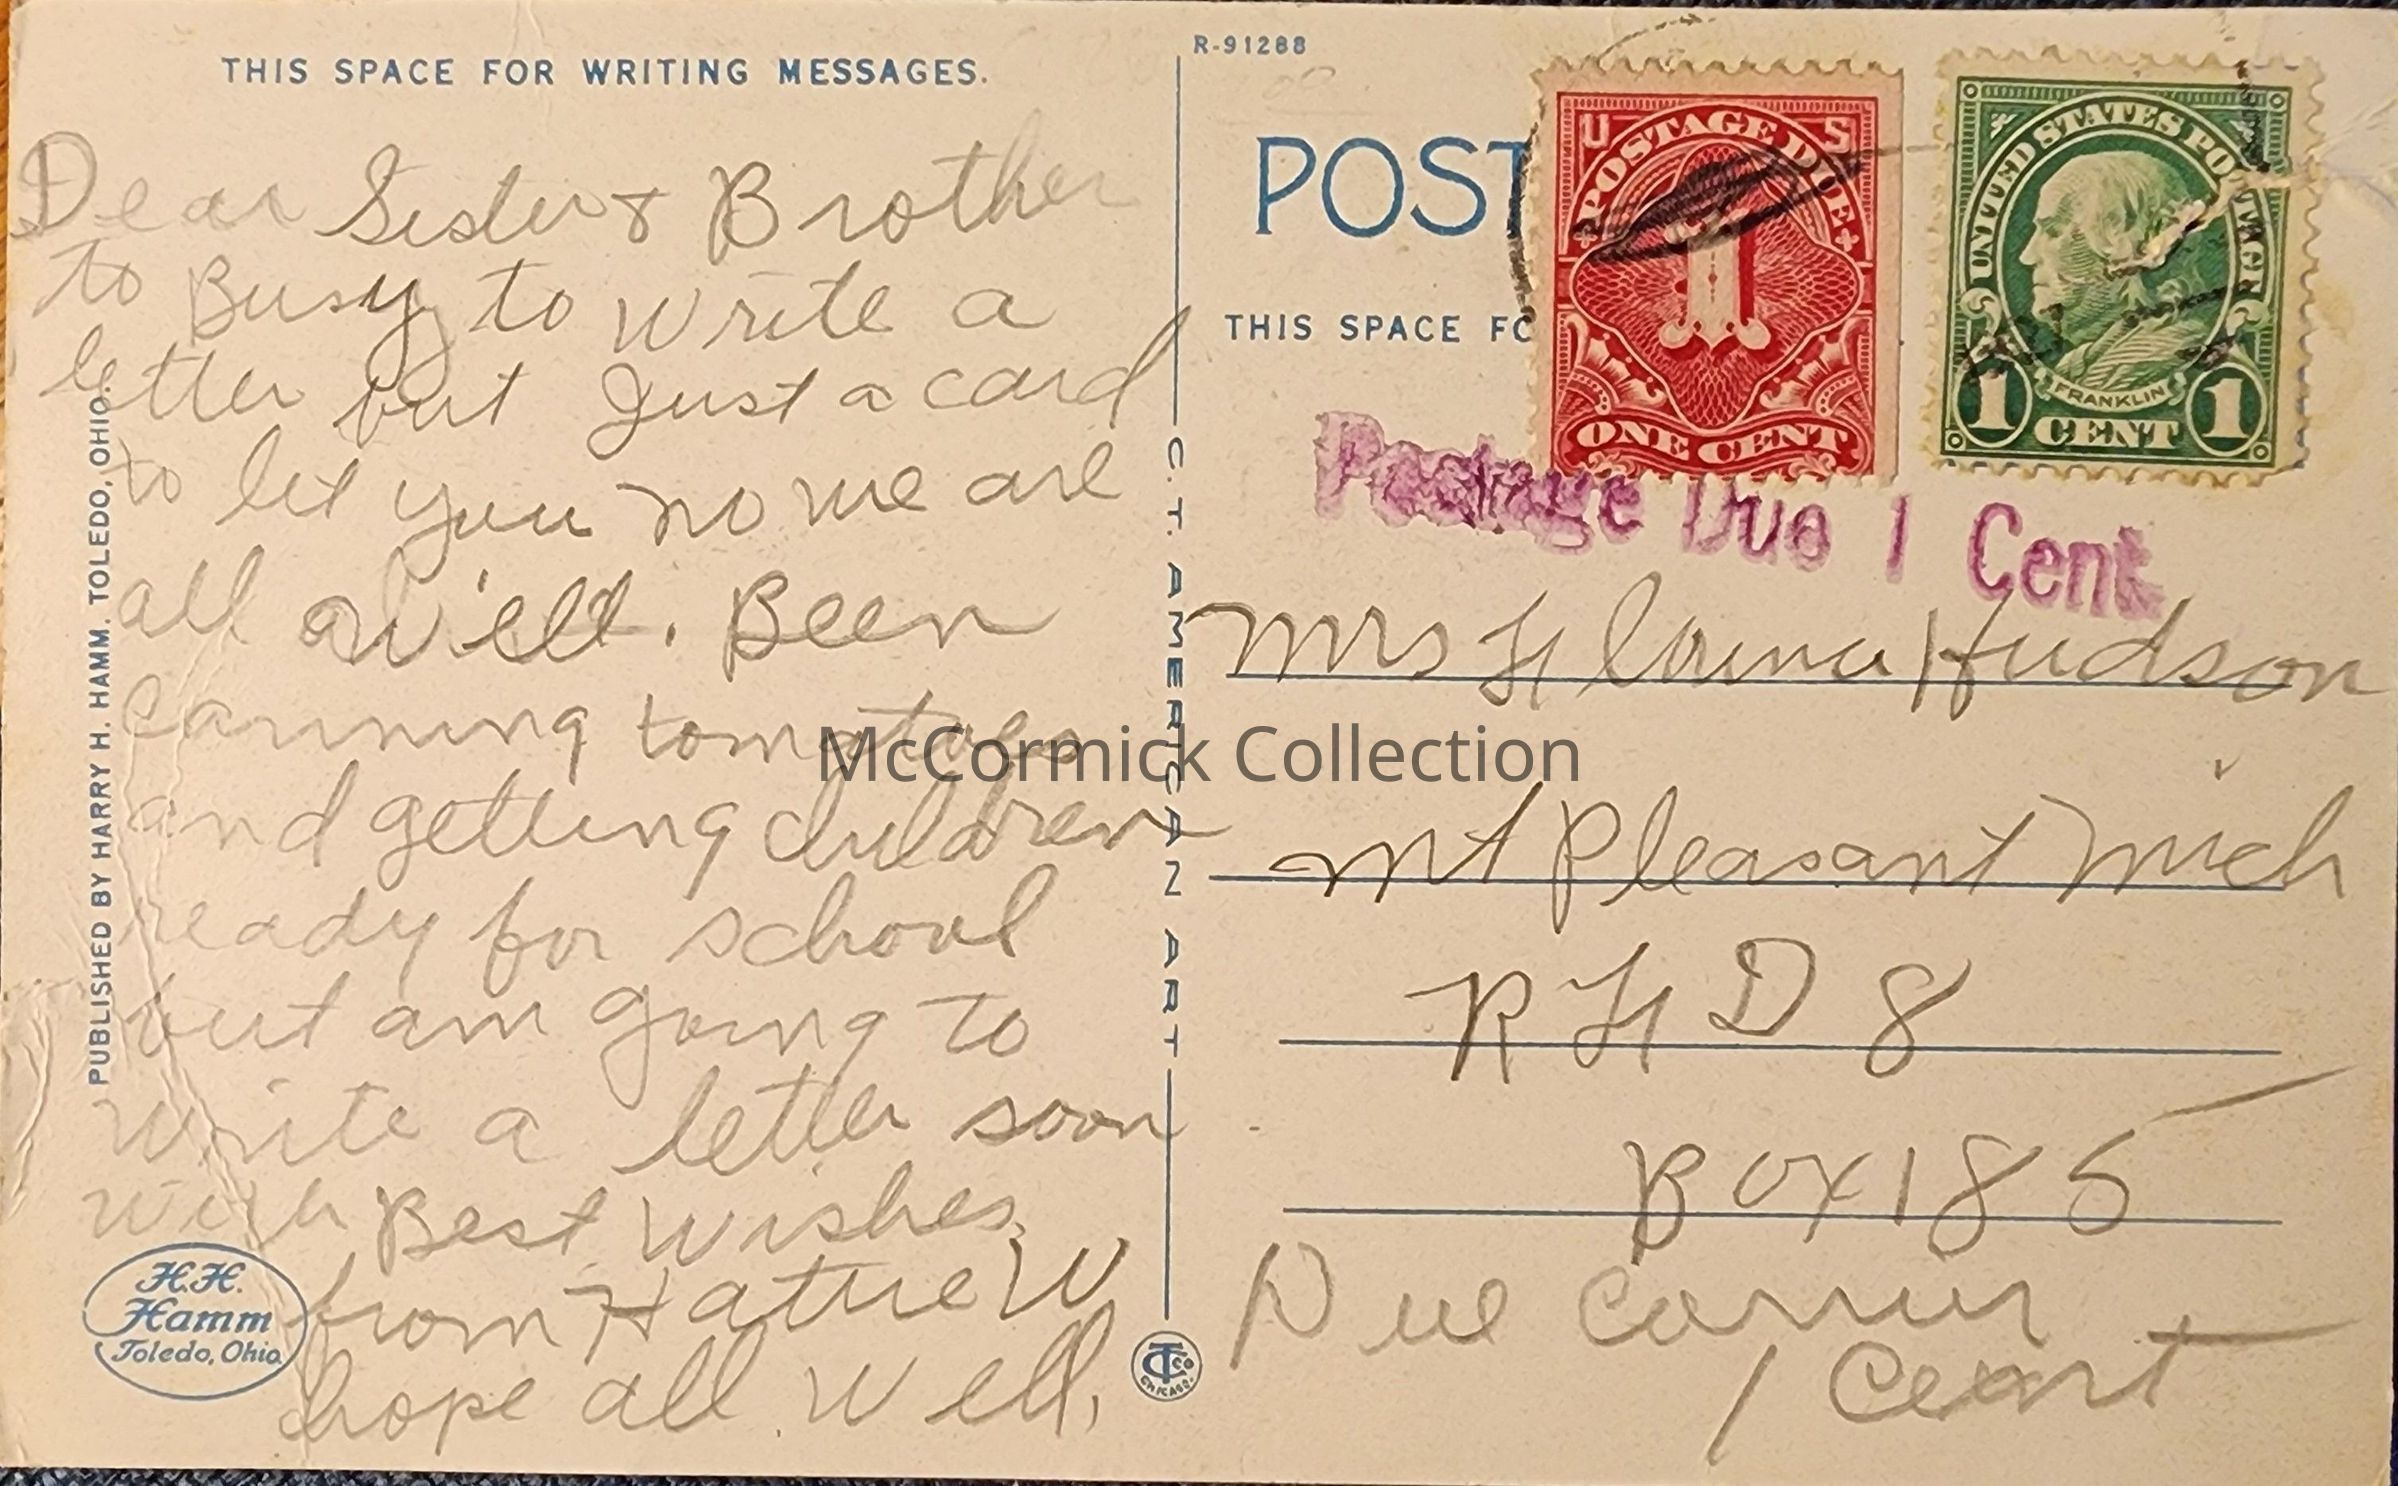 THIS SPACE FOR WRITING MESSAGES.
Dear Sister & Brother
to Busy to write a
letter but Just a card
to let you no we are
all well. Been
canning tomatoes
and getting children
ready for school
but am going to
write a letter soon
with Best wishes
from Hattie W
hope all well,
PUBLISHED BY HARRY H. HAMM. TOLEDO, OHIO.
H.H.
Hamm
Toledo, Ohio
C. T. AMERICAN ART
CTCO
CHICAGO.
R-91288
POST
THIS SPACE FO
U S
POSTAGE DUE
1
ONE CENT
UNITED STATES POSTAGE
FRANKLIN
1 CENT 1
Postage Due 1 Cent
Mrs Hudson
Mt Pleasant Mich
R F D 8
Box 185
Due Carrier
1 Cent
McCormick Collection